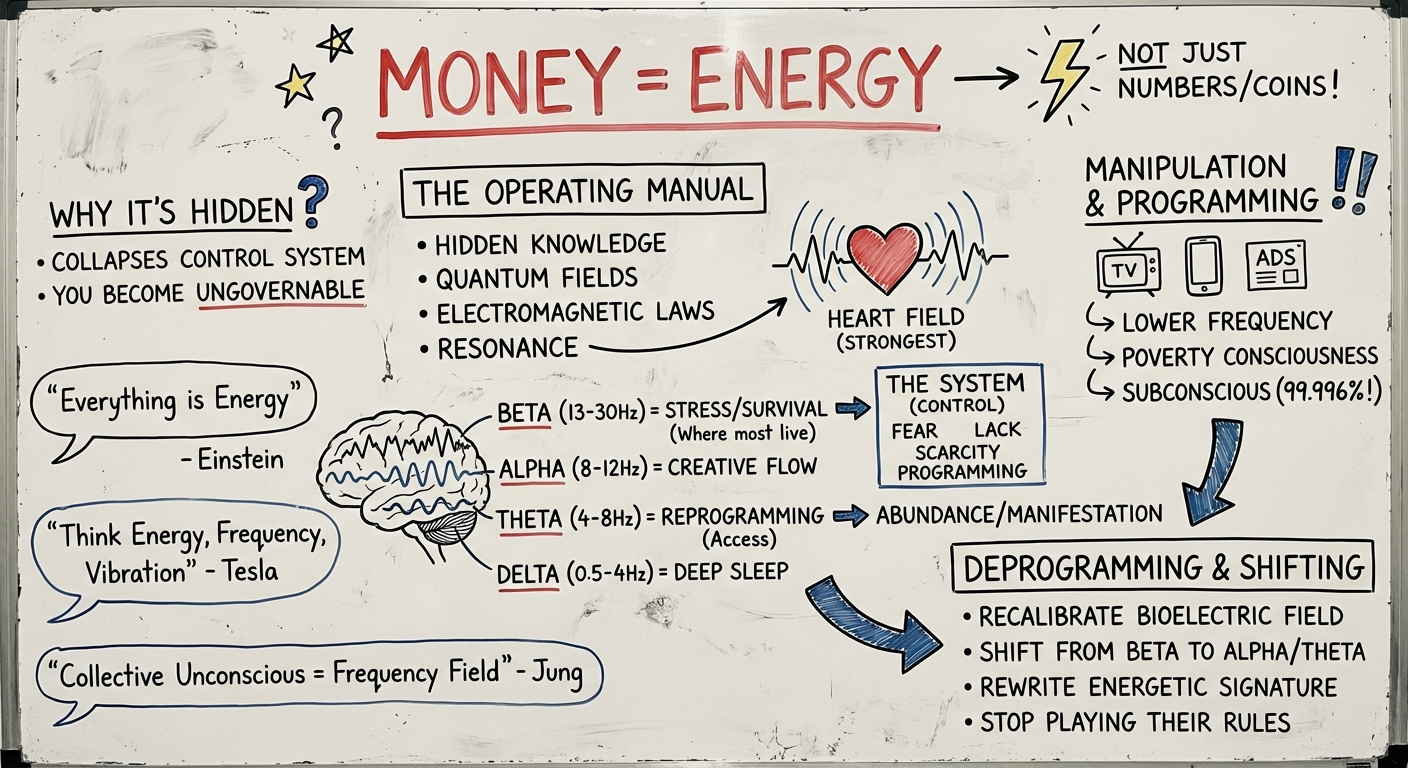 MONEY = ENERGY → NOT JUST
NUMBERS/COINS!
?
WHY IT'S HIDDEN?
• COLLAPSES CONTROL SYSTEM
• YOU BECOME UNGOVERNABLE
THE OPERATING MANUAL
• HIDDEN KNOWLEDGE
• QUANTUM FIELDS
• ELECTROMAGNETIC LAWS
• RESONANCE
HEART FIELD
(STRONGEST)
MANIPULATION
& PROGRAMMING!!
TV
ADS
LOWER FREQUENCY
POVERTY CONSCIOUSNESS
SUBCONSCIOUS (99.996%!)
"Everything is Energy"
- Einstein
"Think Energy, Frequency,
Vibration" - Tesla
"Collective Unconscious = Frequency Field" - Jung
BETA (13-30Hz) = STRESS/SURVIVAL
(Where most live)
ALPHA (8-12Hz) = CREATIVE FLOW
THETA (4-8Hz) = REPROGRAMMING
(Access)
ABUNDANCE/MANIFESTATION
DELTA (0.5-4Hz) = DEEP SLEEP
THE SYSTEM
(CONTROL)
FEAR LACK
SCARCITY
PROGRAMMING
DEPROGRAMMING & SHIFTING
• RECALIBRATE BIOELECTRIC FIELD
• SHIFT FROM BETA TO ALPHA/THETA
• REWRITE ENERGETIC SIGNATURE
• STOP PLAYING THEIR RULES